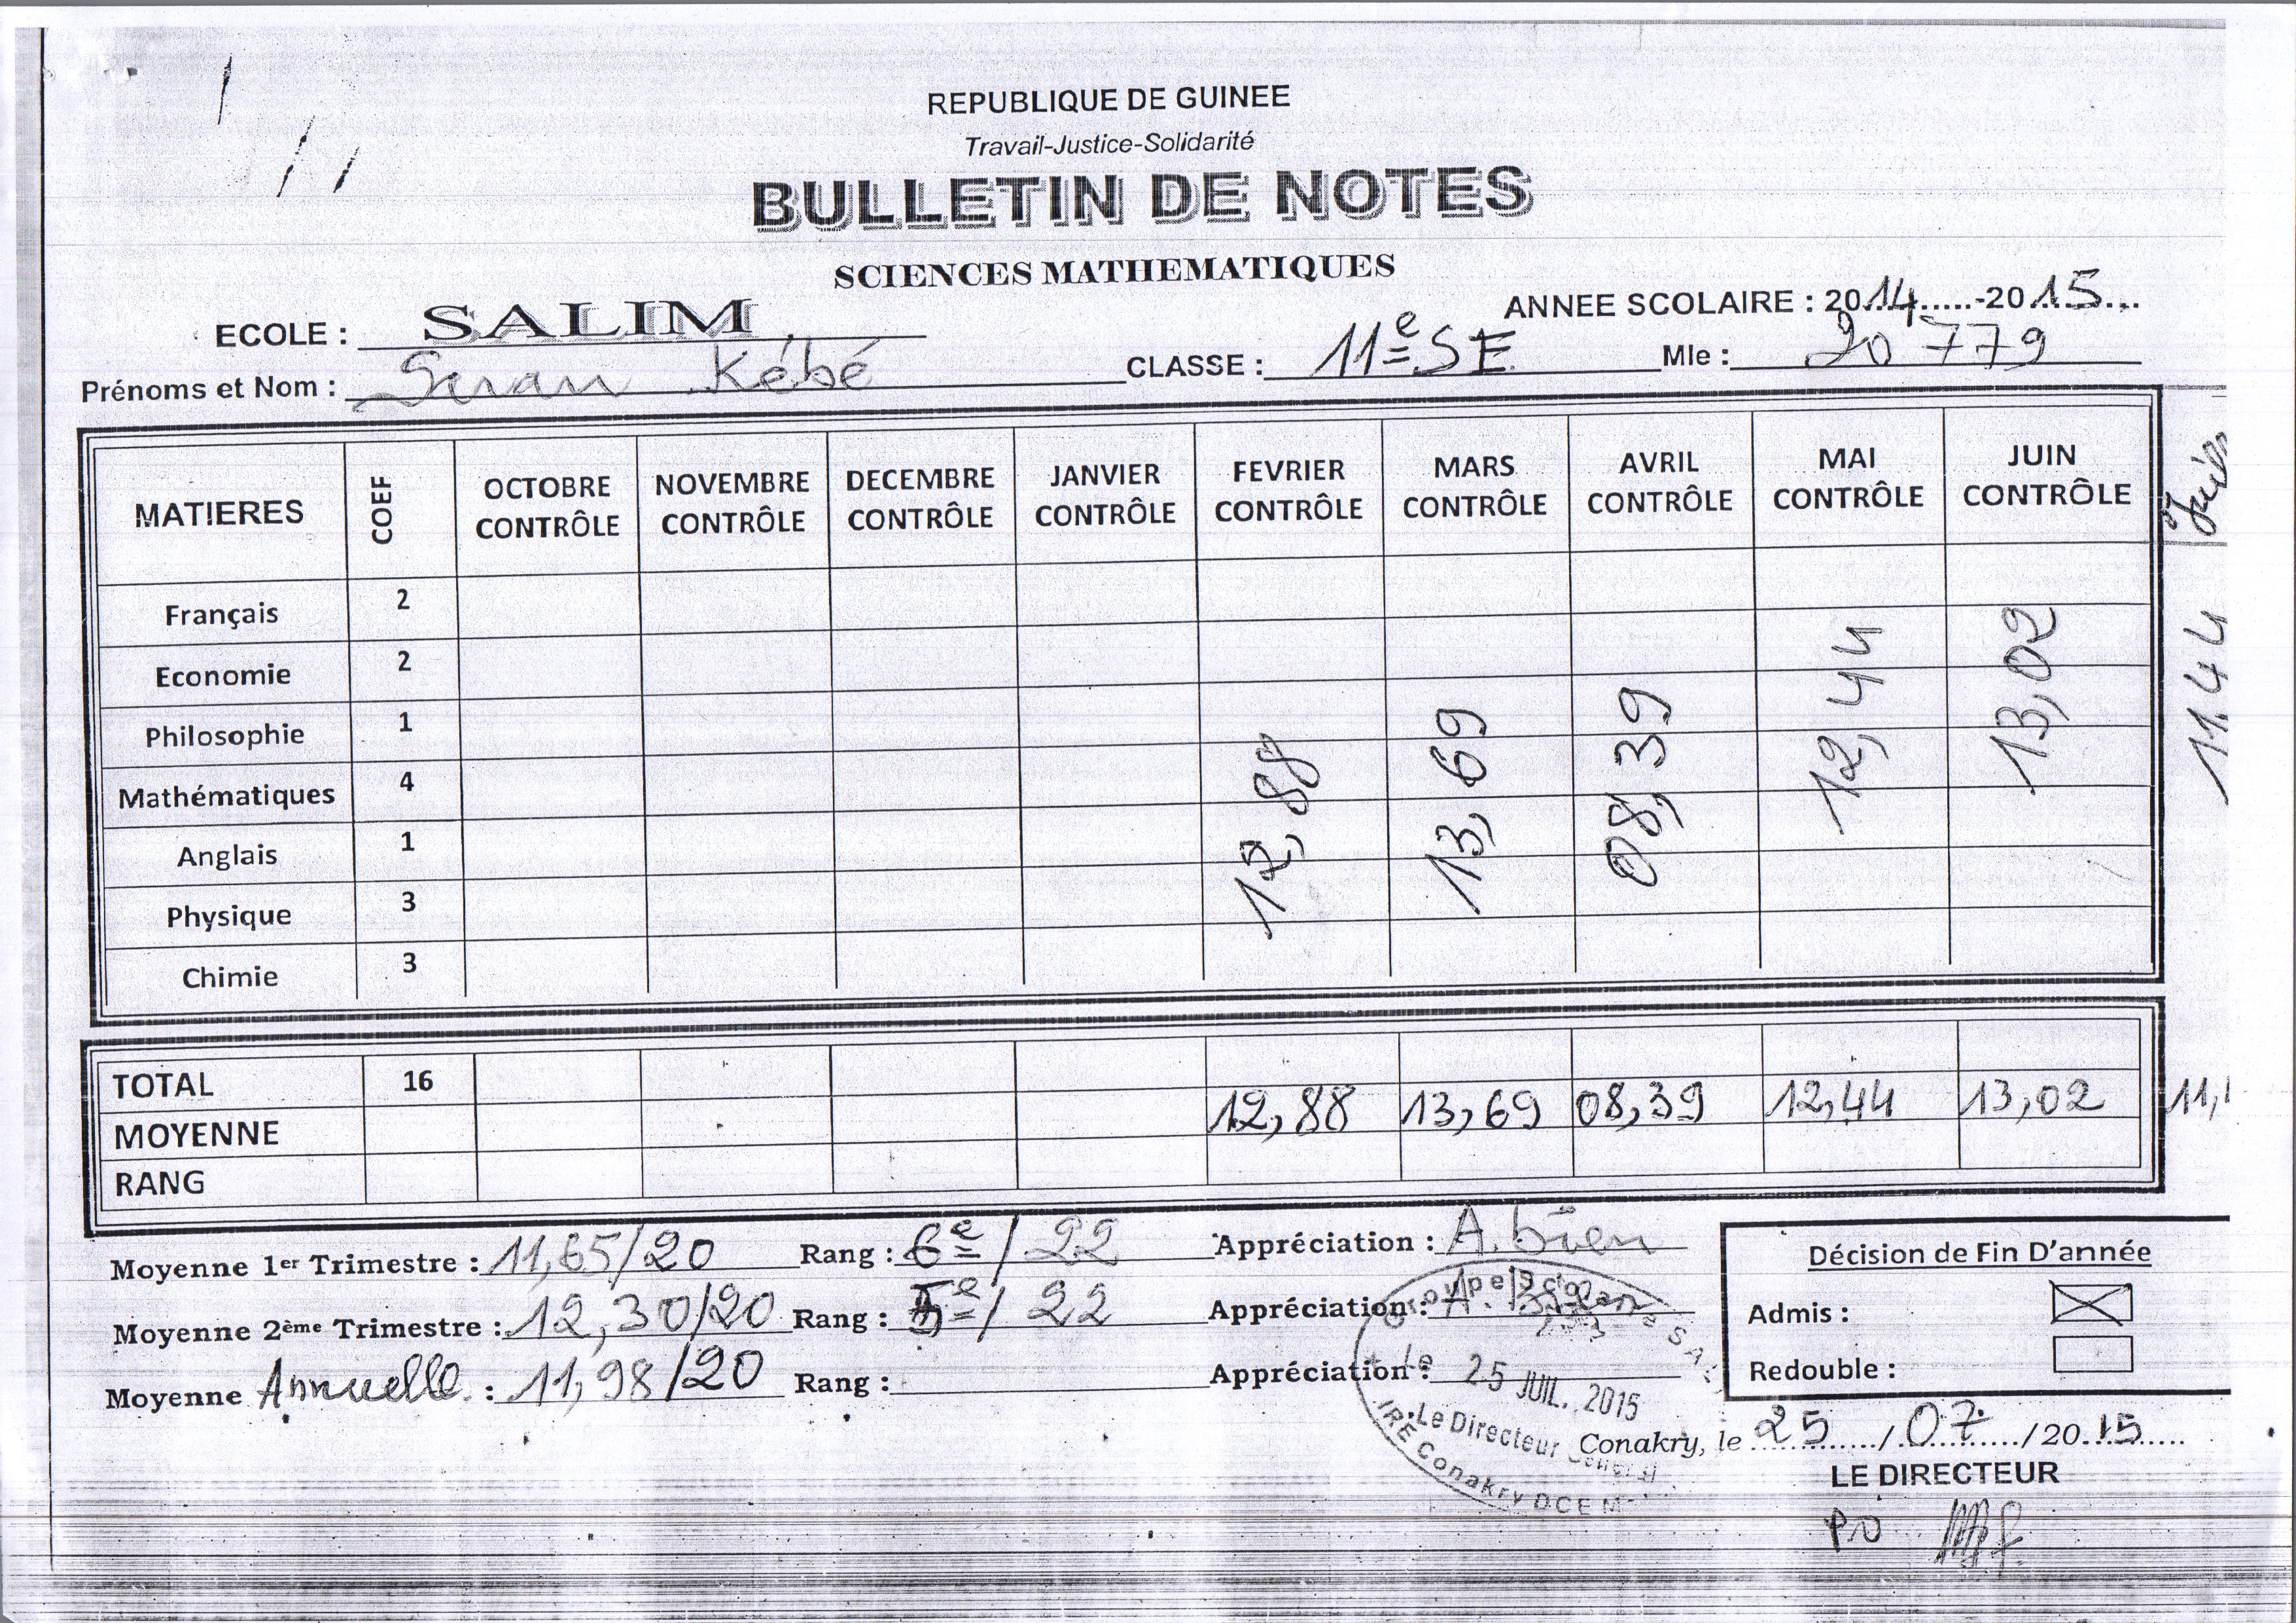 REPUBLIQUE DE GUINEE
Travail-Justice-Solidarité
BULLETIN DE NOTES
SCIENCES MATHEMATIQUES
ANNEE SCOLAIRE : 2014.....-2015...
ECOLE : SALIM
Prénoms et Nom : Kébé CLASSE : 11e SE Mle : 20 779
MATIERES COEF OCTOBRE CONTRÔLE NOVEMBRE CONTRÔLE DECEMBRE CONTRÔLE JANVIER CONTRÔLE FEVRIER CONTRÔLE MARS CONTRÔLE AVRIL CONTRÔLE MAI CONTRÔLE JUIN CONTRÔLE
Français 2
Economie 2
Philosophie 1
Mathématiques 4
Anglais 1
Physique 3
Chimie 3
12,88 13,69 08,39 12,44 13,02 11.44
TOTAL 16
MOYENNE 12,88 13,69 08,39 12,44 13,02 11,
RANG
Moyenne 1er Trimestre : 11,65/20 Rang : 6e/22 Appréciation : A. bien
Moyenne 2ème Trimestre : 12,30/20 Rang : 5e/22 Appréciation : A. Bien
Moyenne Annuelle : 11,98/20 Rang : Appréciation :
Décision de Fin D'année
Admis :
Redouble :
Groupe Scolaire SA
Le 25 JUIL. 2015
Le Directeur General
IRE Conakry DCE M
Conakry, le 25/07/2015
LE DIRECTEUR
PO